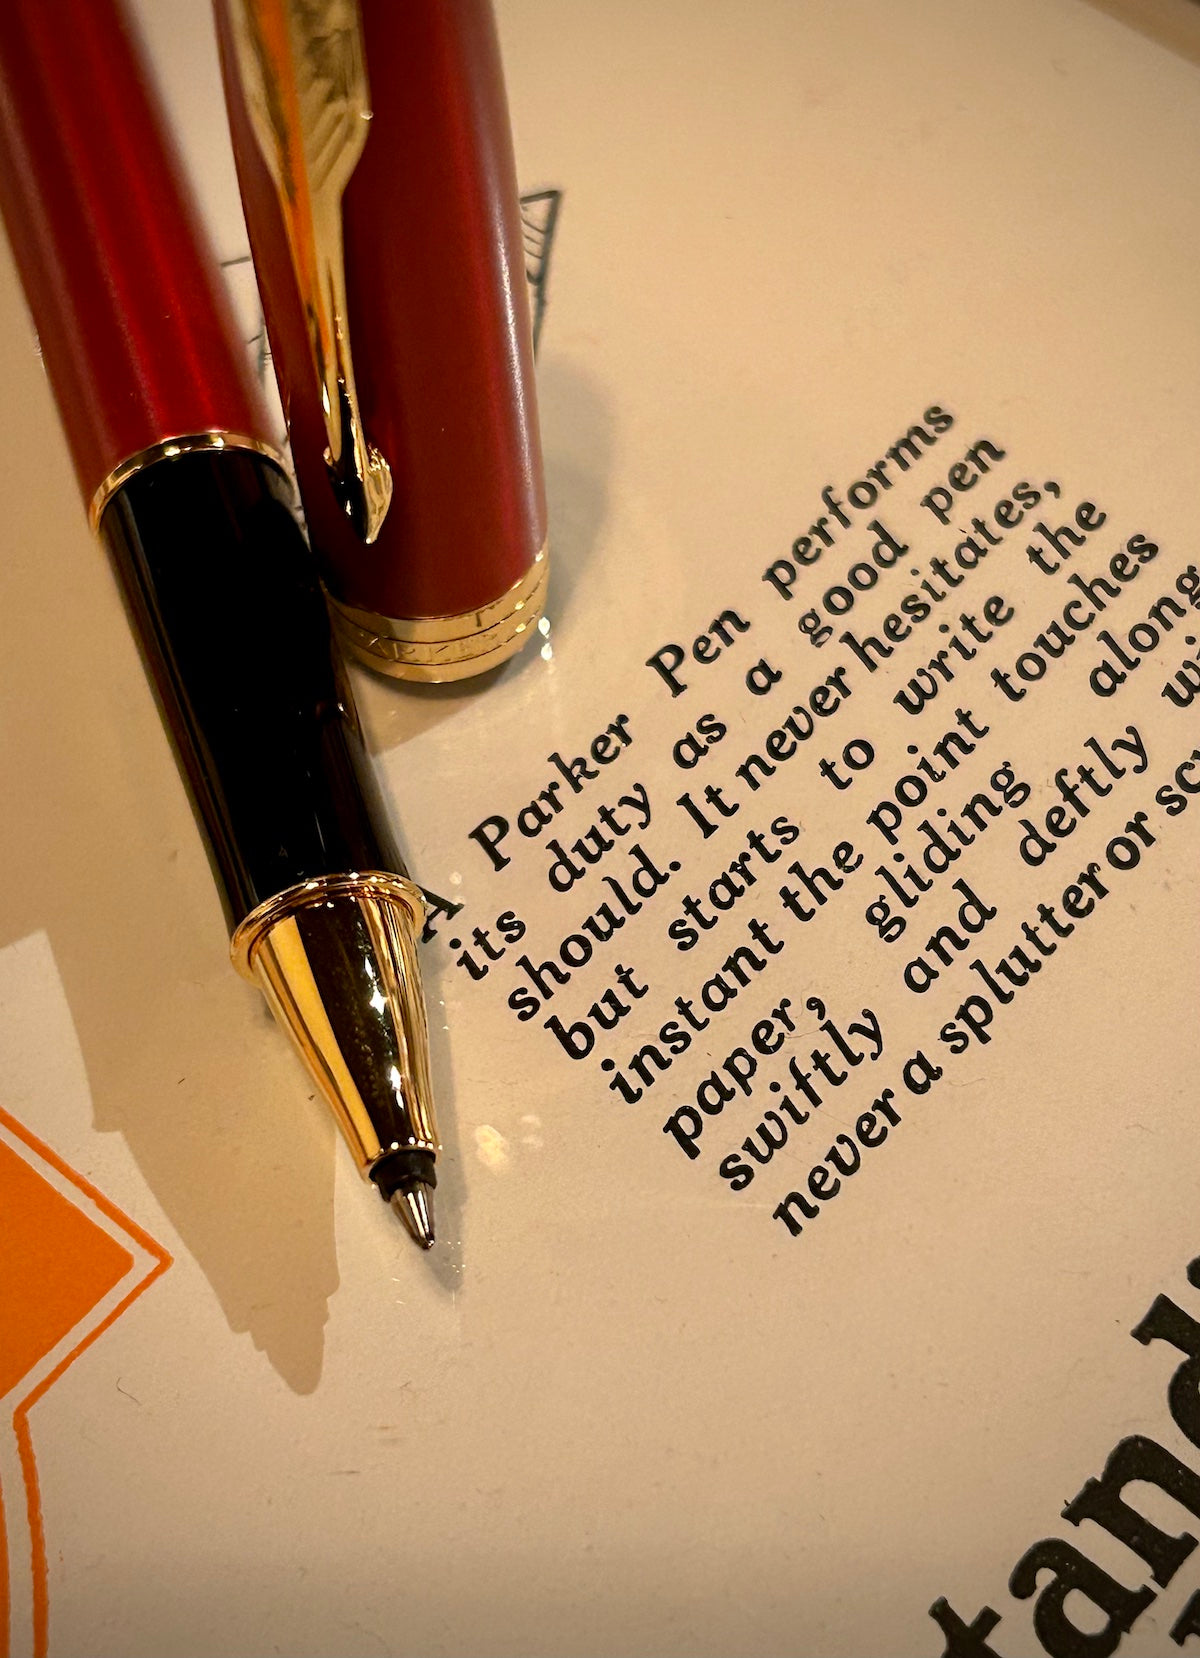 A Parker Pen performs
its duty as a good pen
should. It never hesitates,
but starts to write the
instant the point touches
paper, gliding along
swiftly and deftly
never a splutter or